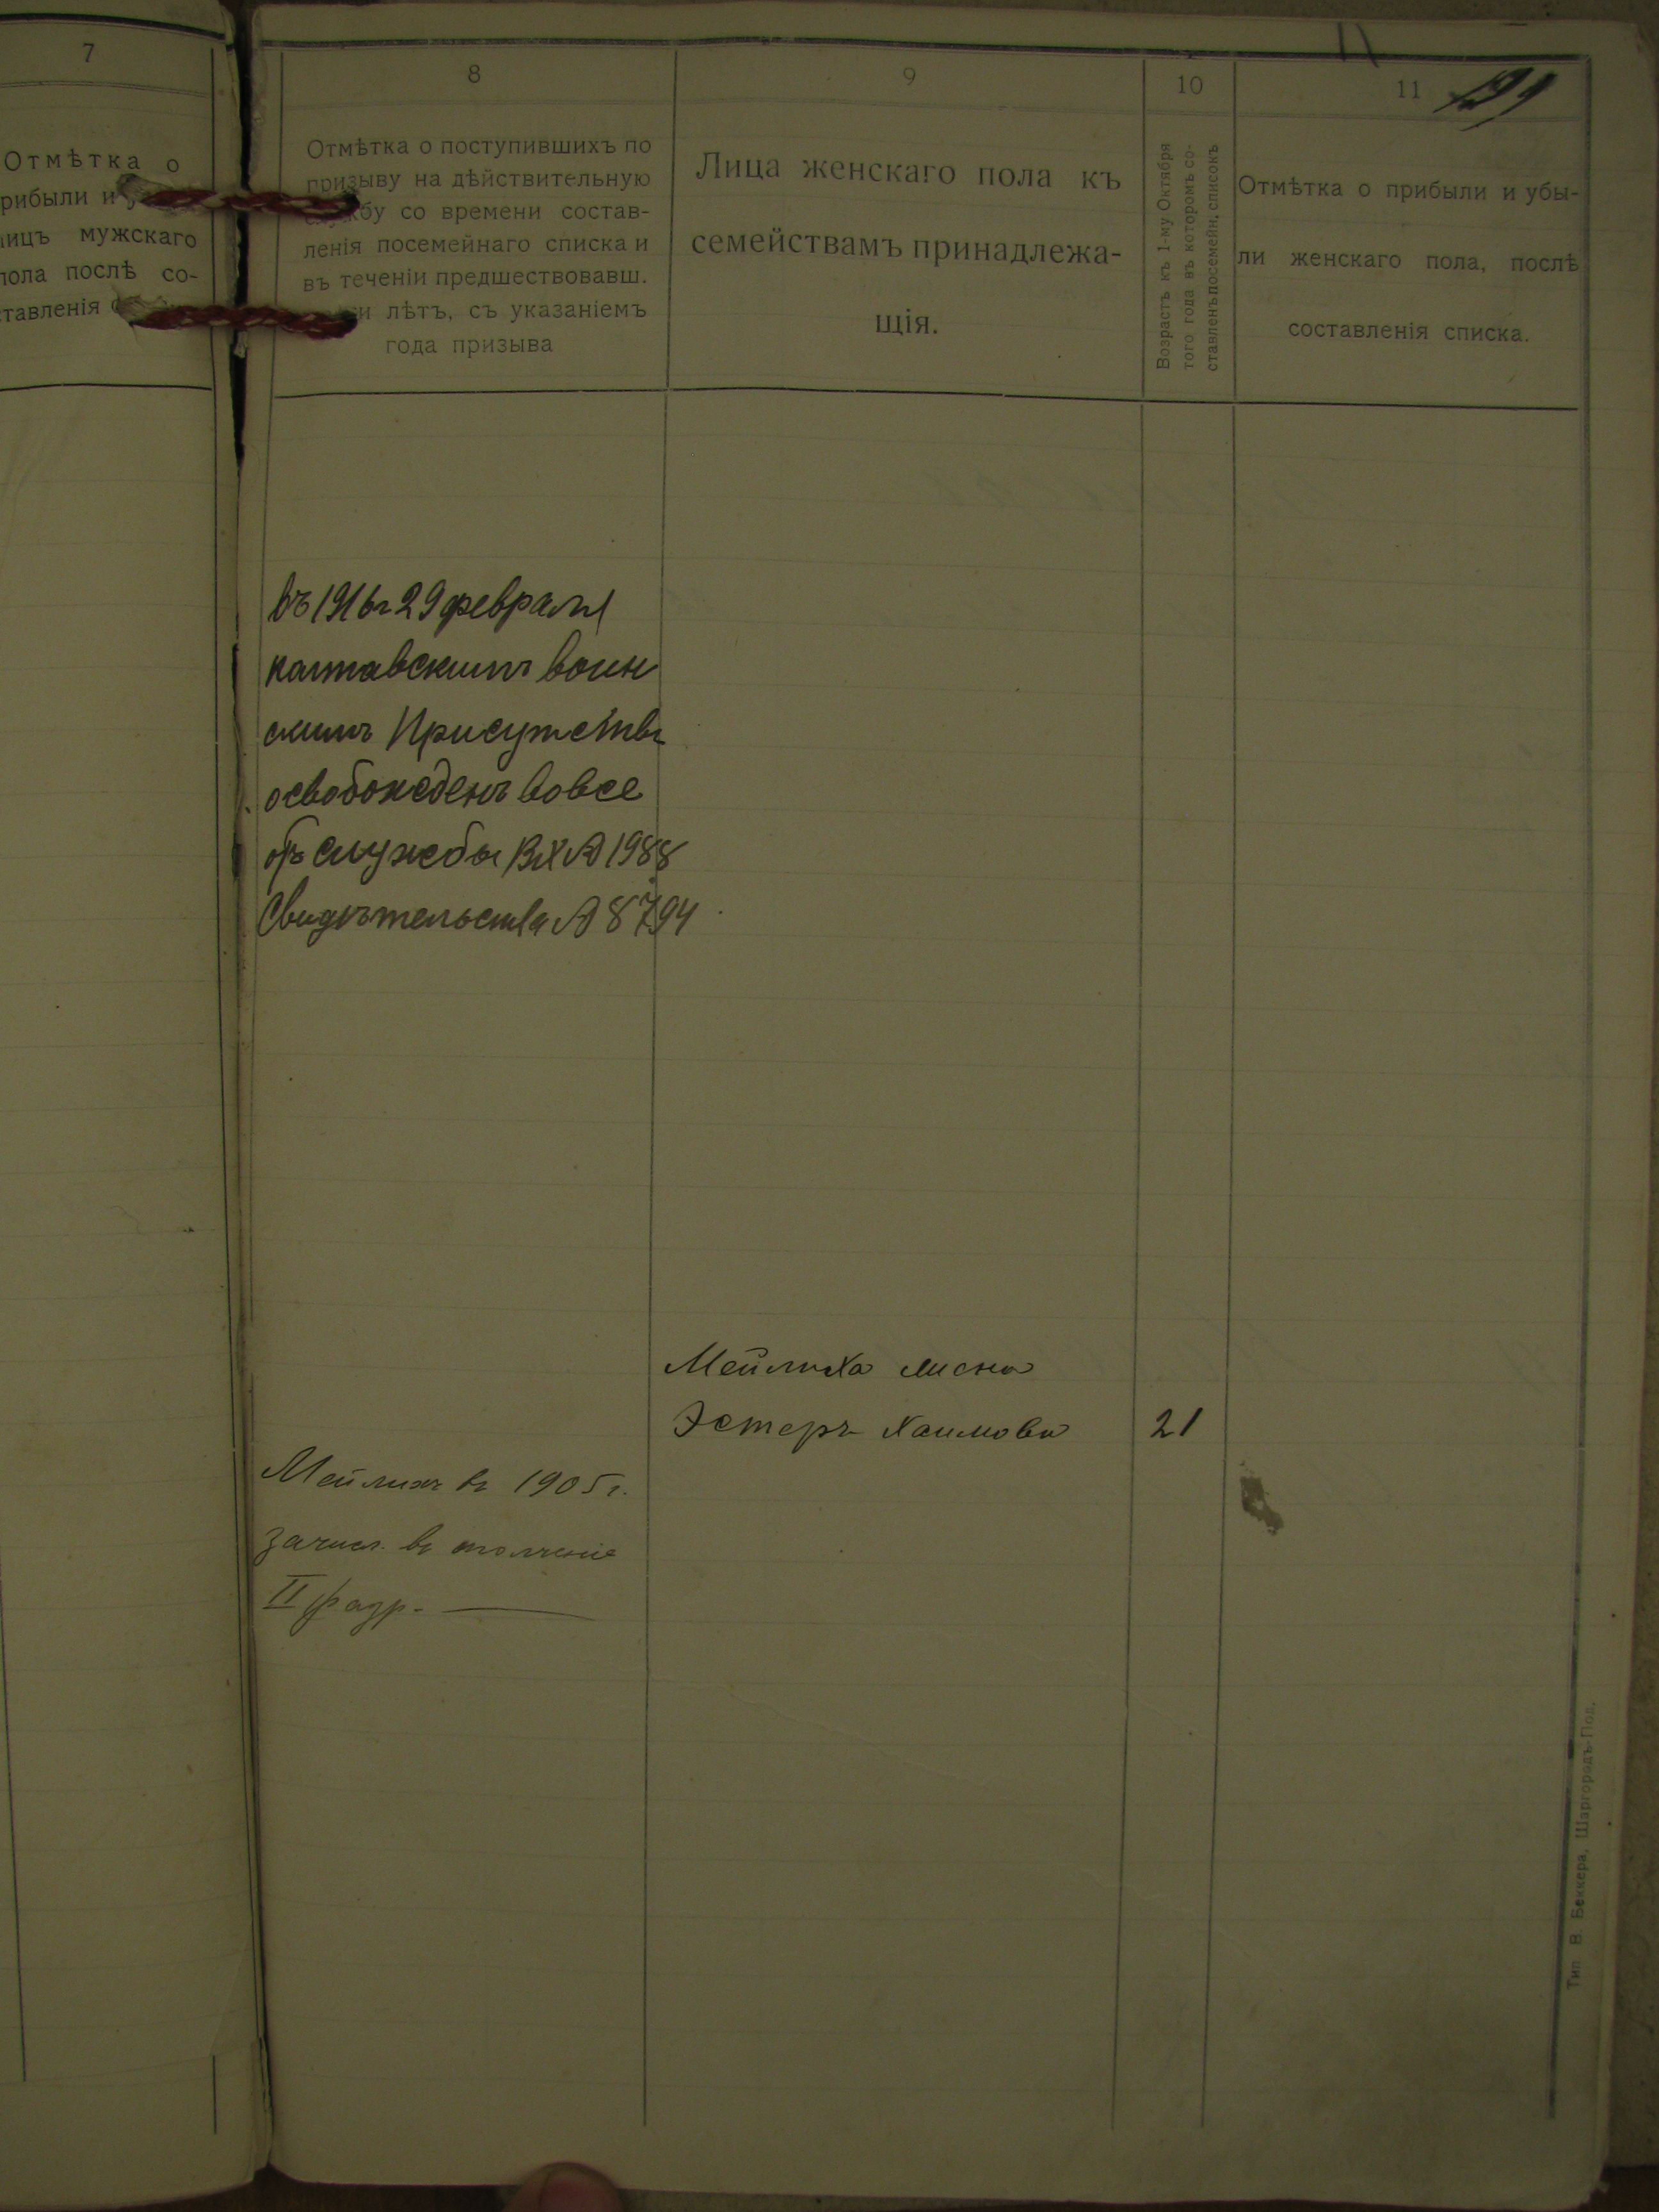 7
Отмѣтка о
рибыли и у
ицъ мужскаго
пола послѣ со-
ставленія
8
Отмѣтка о поступившихъ по
призыву на дѣйствительную
службу со времени состав-
ленія посемейнаго списка и
въ теченіи предшествовавш.
и лѣтъ, съ указаніемъ
года призыва
9
Лица женскаго пола къ
семействамъ принадлежа-
щія.
10
Возрастъ къ 1-му Октября
того года въ которомъ со-
ставленъ посемейн. списокъ
11
Отмѣтка о прибыли и убы-
ли женскаго пола, послѣ
составленія списка.
въ 1916 г 29 февраля
воин
скимъ Присутств
освобожденъ вовсе
отъ службы 1988
Свидѣтельства № 8794
Мейлиха жена
Эстеръ Хаимова 21
Мейлихъ въ 1905 г.
зачисл. въ ополченіе
II разр.
Тип В. Беккера, Шаргородъ-Под.